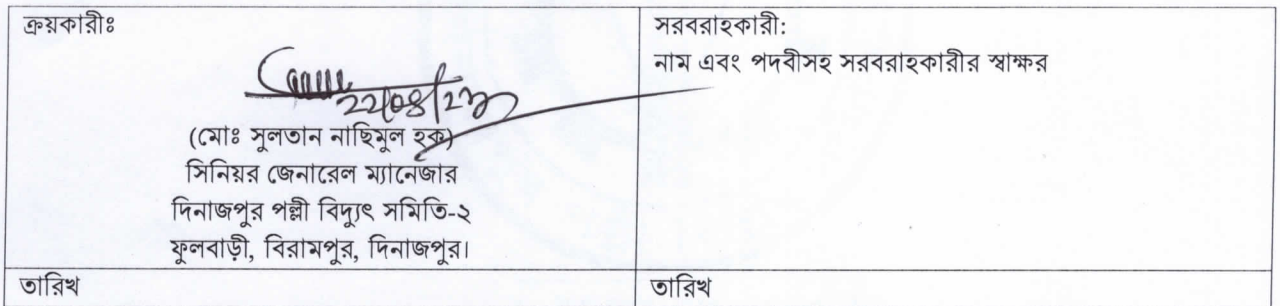 ক্রয়কারীঃ
22/08/23
(মোঃ সুলতান নাছিমুল হক)
সিনিয়র জেনারেল ম্যানেজার
দিনাজপুর পল্লী বিদ্যুৎ সমিতি-২
ফুলবাড়ী, বিরামপুর, দিনাজপুর।
তারিখ
সরবরাহকারী:
নাম এবং পদবীসহ সরবরাহকারীর স্বাক্ষর
তারিখ